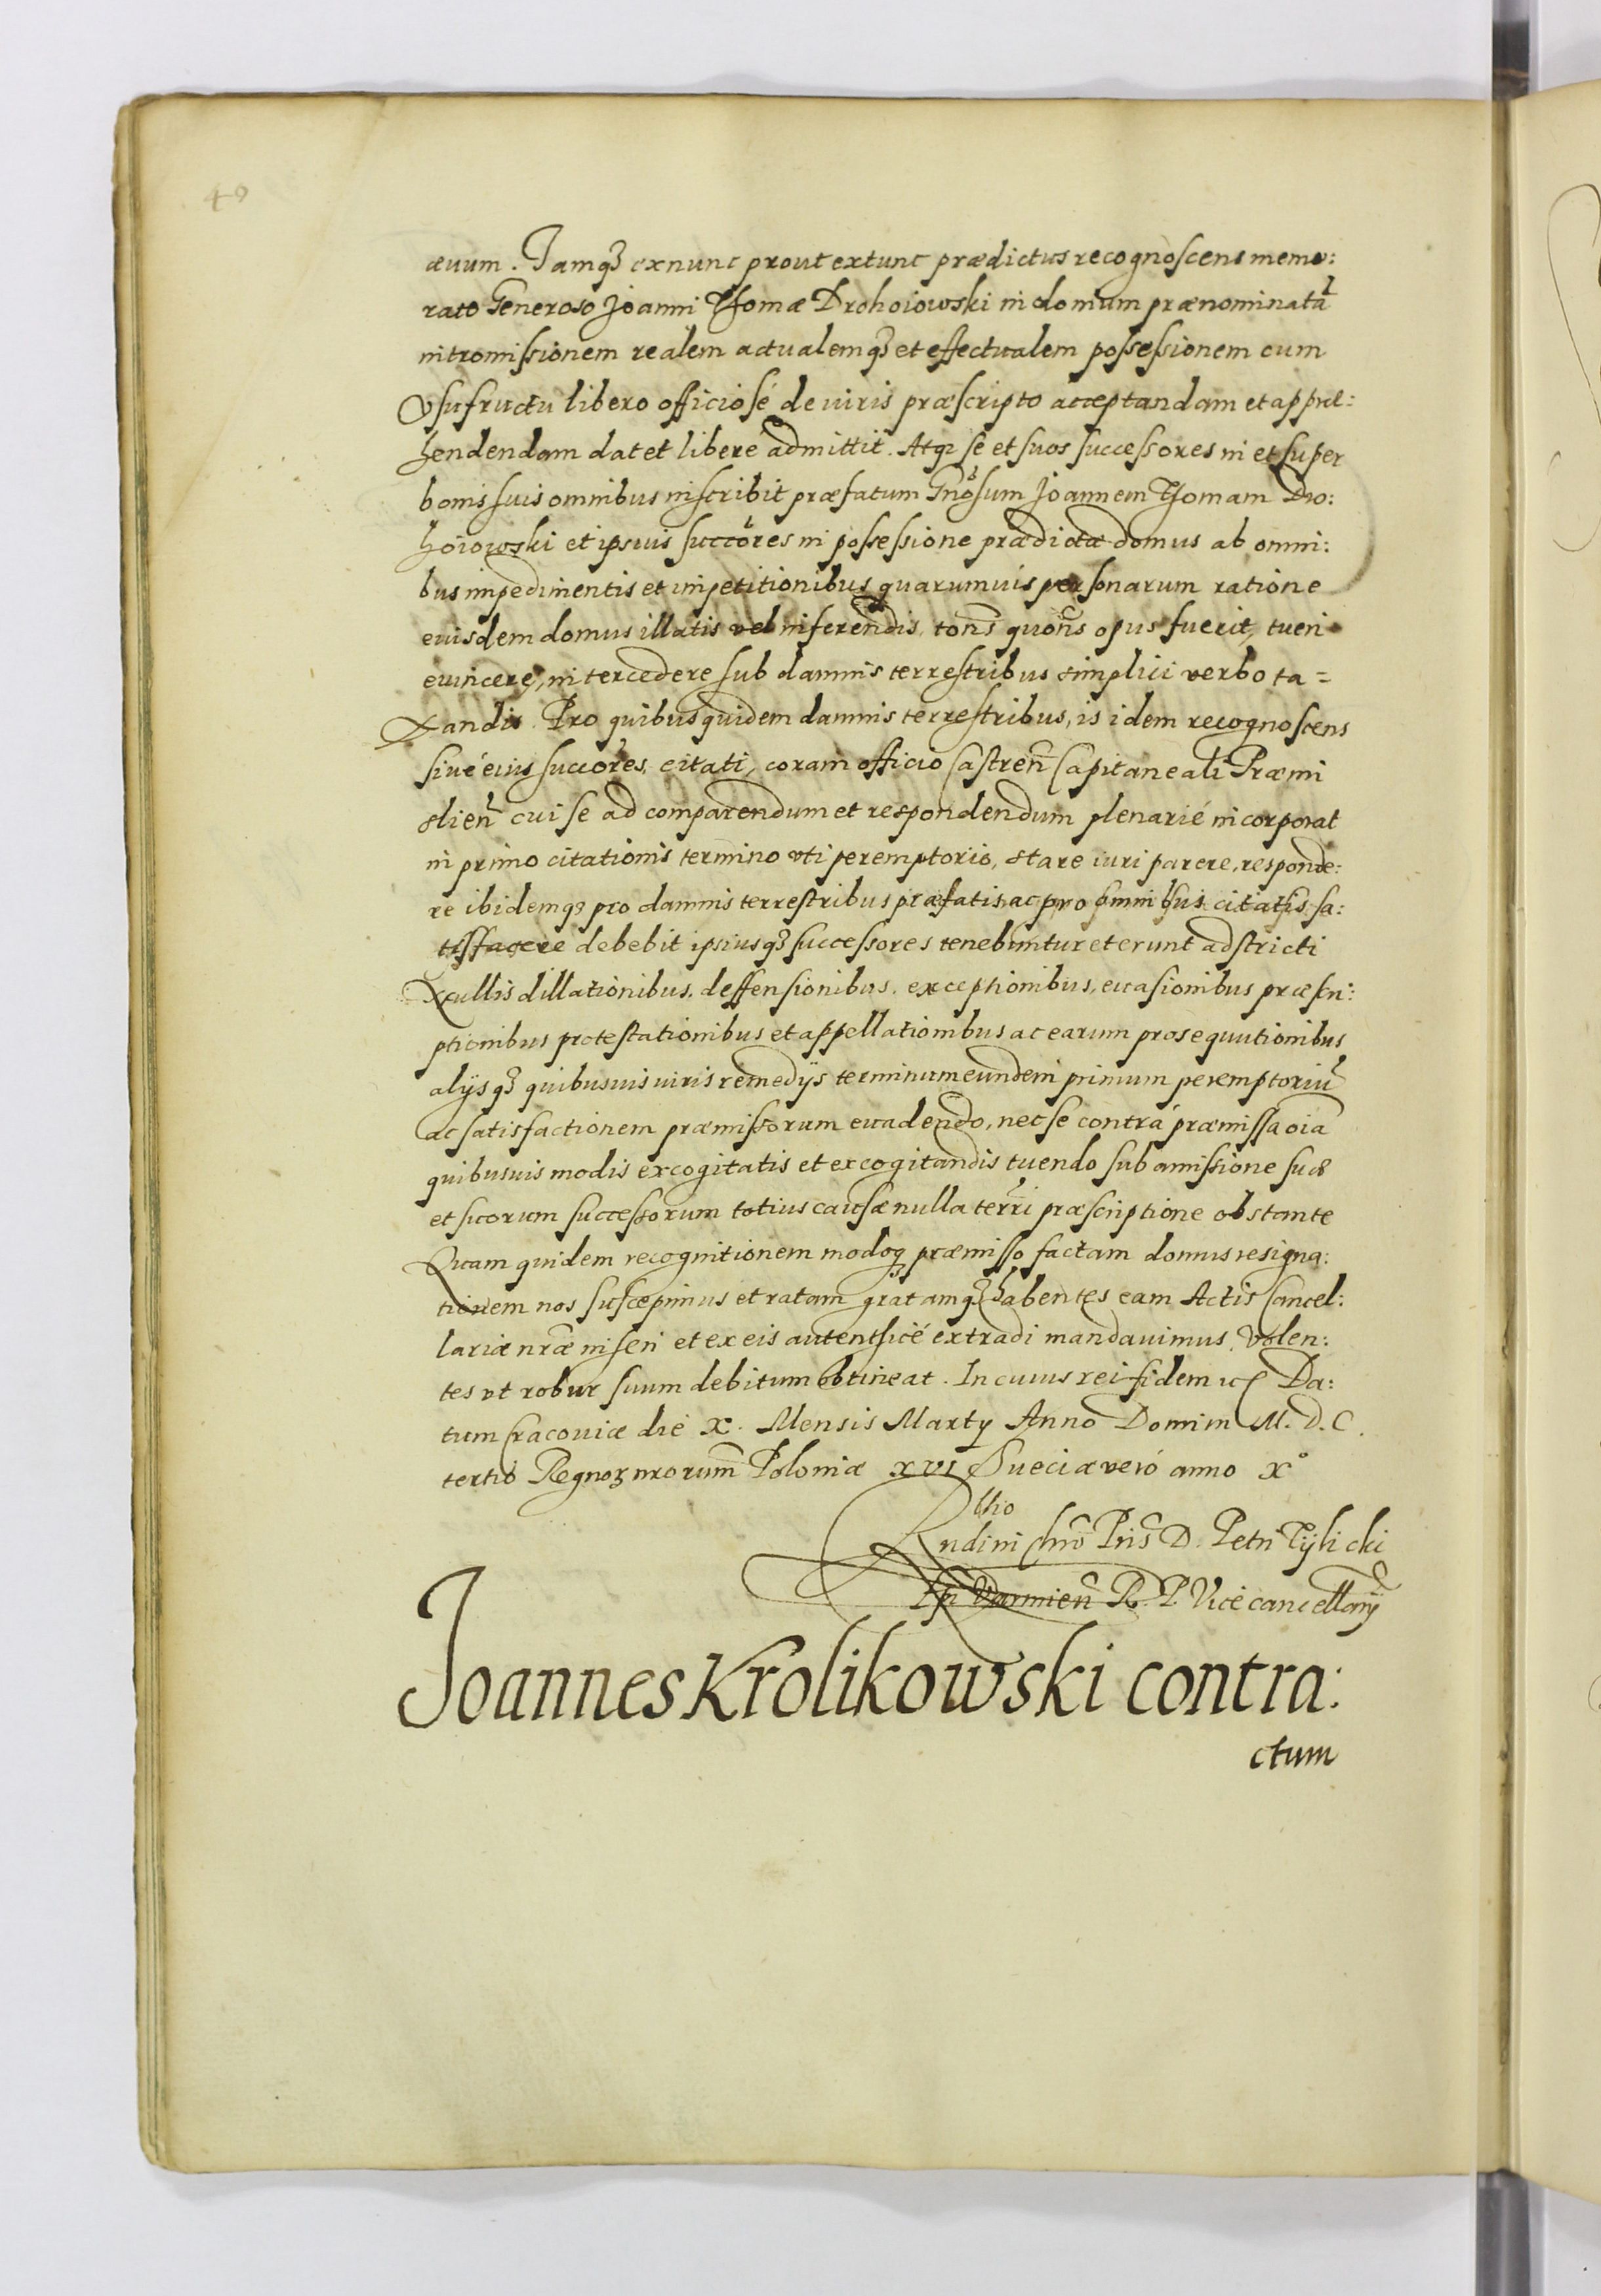 40
æuum. Iamq3 exnunc prout extunc prædictus recognoscens memo:
rato Generoso Joanni Thomæ Drohoiowski in domum prænominatã
intromissionem realem actualemq3 et effectualem possessionem cum
Vsufructu libero officiosé de iuris præscripto acceptandam et appræ:
hendendam dat et libere admittit. Atq3 se et suos successores in et super
bonis suis omnibus inscribit præfatum Gnõsum Joannem Thomam Dro:
hoiowski et ipsius succõres in possessione prædictæ domus ab omni:
bus impedimentis et impetitionibus quarumuis personarum ratione
eiusdem domus illatis vel inferendis, toñs quoñs opus fuerit, tueri
euincere, intercedere sub damnis terrestribus simplici verbo ta=
xandis. Pro quibus quidem damnis terrestribus, is idem recognoscens
siué eius succõres, citati, coram officio Castreñ Capitaneali Præmi
slieñ cui se ad comparendum et respondendum plenarié incorporat
in primo citationis termino vti peremptorio, stare iuri parere, responde:
re ibidemq3 pro damnis terrestribus præfatis, ac pro omnibus citatis sa:
tisfacere debebit ipsiusq3 successores tenebuntur et erunt adstricti
Nullis dillationibus, deffensionibus, exceptionibus, euasionibus præscri:
ptionibus protestationibus et appellationibus ac earum prosequutionibus
alijsq3 quibusuis iuris remedijs terminum eundem primum peremptoriũ
ac satisfactionem præmissorum euadendo, nec se contrá præmissa oĩa
quibusuis modis excogitatis et excogitandis tuendo sub amissione suæ
et suorum successorum totius causæ nulla terrĩ præscriptione obstante
Quam quidem recognitionem modoq3 præmisso factam domus resigna:
tionem nos suscepimus et ratam gratamq3 habentes eam Actis Cancel:
lariæ nr̃æ inseri et ex eis autenthicé extradi mandauimus, Volen:
tes vt robur suum debitum obtineat. In cuius rei fidem etc Da:
tum Cracouiæ die X. Mensis Martij Anno Domini M. D. C.
tertio Regnor3 nrorum̃ Poloniæ XVI Sueciæ veró anno X°
Rndini Chrõ Pris D. Petri Tylicki
Epi Varmieñ R. P. Vicecancellarij
Joannes Krolikowski contra:
ctum